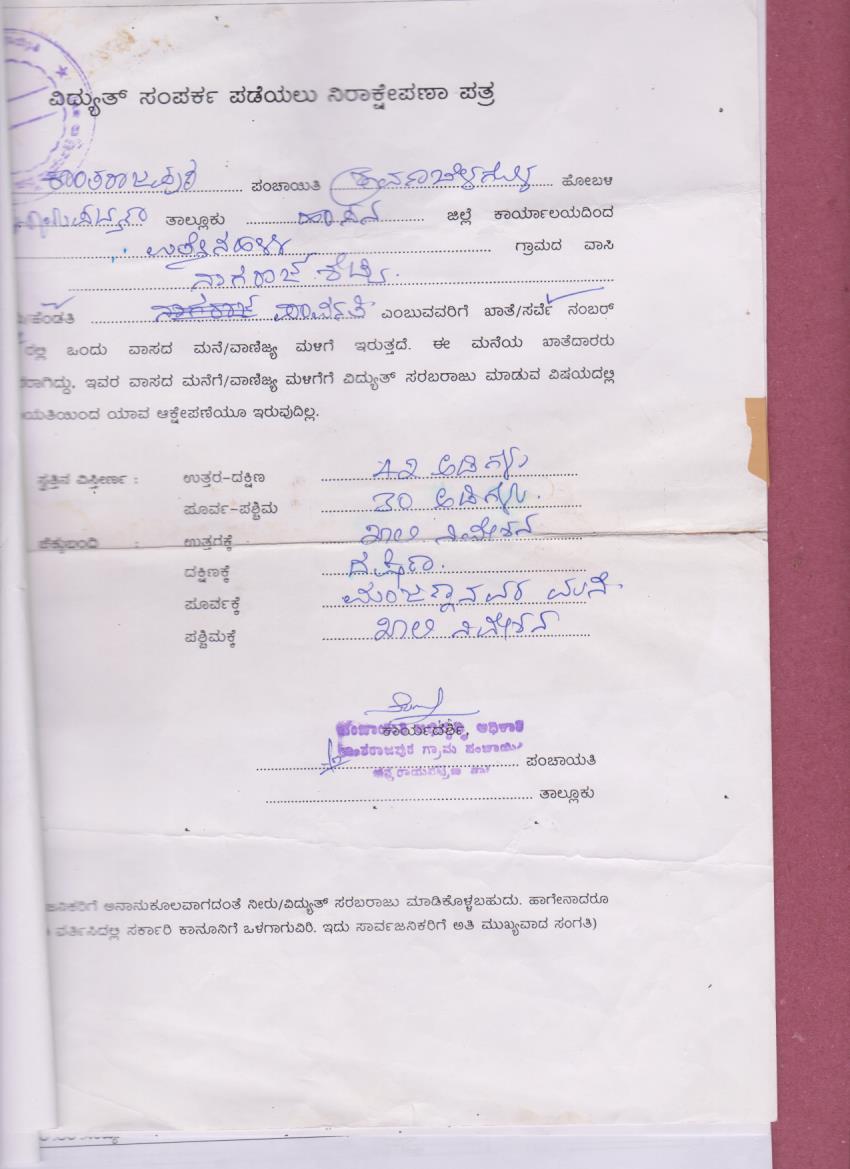 ವಿದ್ಯುತ್ ಸಂಪರ್ಕ ಪಡೆಯಲು ನಿರಾಕ್ಷೇಪಣಾ ಪತ್ರ
ಕಾಂತರಾಜಪುರ ಪಂಚಾಯಿತಿ ಶ್ರವಣಬೆಳಗೊಳ ಹೋಬಳಿ
ತಾಲ್ಲೂಕು ಹಾಸನ ಜಿಲ್ಲೆ ಕಾರ್ಯಾಲಯದಿಂದ
ಗ್ರಾಮದ ವಾಸಿ
ನಾಗರಾಜ್ ಶೆಟ್ಟಿ.
ಹೆಂಡತಿ ಪಾರ್ವತಿ ಎಂಬುವವರಿಗೆ ಖಾತೆ/ಸರ್ವೆ ನಂಬರ್
ರಲ್ಲಿ ಒಂದು ವಾಸದ ಮನೆ/ವಾಣಿಜ್ಯ ಮಳಿಗೆ ಇರುತ್ತದೆ. ಈ ಮನೆಯ ಖಾತೆದಾರರು
ರಾಗಿದ್ದು, ಇವರ ವಾಸದ ಮನೆಗೆ/ವಾಣಿಜ್ಯ ಮಳಿಗೆಗೆ ವಿದ್ಯುತ್ ಸರಬರಾಜು ಮಾಡುವ ವಿಷಯದಲ್ಲಿ
ಯತಿಯಿಂದ ಯಾವ ಆಕ್ಷೇಪಣೆಯೂ ಇರುವುದಿಲ್ಲ.
ಸ್ವತ್ತಿನ ವಿಸ್ತೀರ್ಣ : ಉತ್ತರ-ದಕ್ಷಿಣ 42 ಅಡಿಗಳು
ಪೂರ್ವ-ಪಶ್ಚಿಮ 30 ಅಡಿಗಳು.
ಚೆಕ್ಕುಬಂದಿ : ಉತ್ತರಕ್ಕೆ ಖಾಲಿ ನಿವೇಶನ
ದಕ್ಷಿಣಕ್ಕೆ
ಪೂರ್ವಕ್ಕೆ ಮಂಜಣ್ಣನವರ ಮನೆ
ಪಶ್ಚಿಮಕ್ಕೆ ಖಾಲಿ ನಿವೇಶನ
ಕಾರ್ಯದರ್ಶಿ,
ಪಂಚಾಯಿತಿ ಅಭಿವೃದ್ಧಿ ಅಧಿಕಾರಿ
ಕಾಂತರಾಜಪುರ ಗ್ರಾಮ ಪಂಚಾಯಿತಿ
ಪಂಚಾಯತಿ
ಚನ್ನರಾಯಪಟ್ಟಣ ತಾ||
ತಾಲ್ಲೂಕು
ಜನಿಕರಿಗೆ ಅನಾನುಕೂಲವಾಗದಂತೆ ನೀರು/ವಿದ್ಯುತ್ ಸರಬರಾಜು ಮಾಡಿಕೊಳ್ಳಬಹುದು. ಹಾಗೇನಾದರೂ
ವರ್ತಿಸಿದಲ್ಲಿ ಸರ್ಕಾರಿ ಕಾನೂನಿಗೆ ಒಳಗಾಗುವಿರಿ. ಇದು ಸಾರ್ವಜನಿಕರಿಗೆ ಅತಿ ಮುಖ್ಯವಾದ ಸಂಗತಿ)